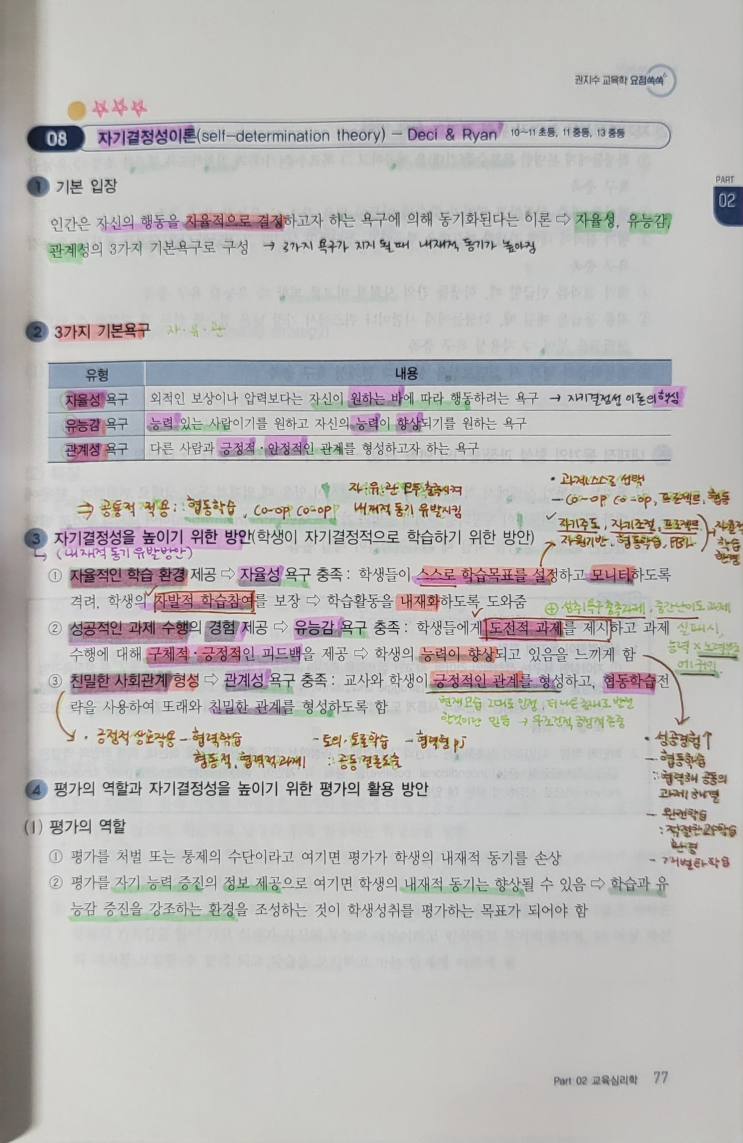 권지수 교육학 요점쏙쏙
08 자기결정성이론(self-determination theory) - Deci & Ryan 10~11 초등, 11 중등, 13 중등
PART
02
1 기본 입장
인간은 자신의 행동을 자율적으로 결정하고자 하는 욕구에 의해 동기화된다는 이론 ⇨ 자율성, 유능감,
관계성의 3가지 기본욕구로 구성 → 3가지 욕구가 지지 될 때 내재적 동기가 높아짐
2 3가지 기본욕구 자·유·관
유형 내용
자율성 욕구 외적인 보상이나 압력보다는 자신이 원하는 바에 따라 행동하려는 욕구 → 자기결정성 이론의 핵심
유능감 욕구 능력 있는 사람이기를 원하고 자신의 능력이 향상되기를 원하는 욕구
관계성 욕구 다른 사람과 긍정적·안정적인 관계를 형성하고자 하는 욕구
자·유·관 모두 충족시켜
⇒ 공통적 적용 : 협동학습, co-op co-op 내재적 동기 유발시킴
• 과제 스스로 선택
- co-op co-op, 프로젝트, 협동
✓ 자기주도, 자기조절, 프로젝트
자원기반, 협동학습, PBL
학습
환경
3 자기결정성을 높이기 위한 방안(학생이 자기결정적으로 학습하기 위한 방안)
(내재적 동기 유발방안)
① 자율적인 학습 환경 제공 ⇨ 자율성 욕구 충족 : 학생들이 스스로 학습목표를 설정하고 모니터하도록
격려, 학생의 자발적 학습참여를 보장 ⇨ 학습활동을 내재화하도록 도와줌
② 성공적인 과제 수행의 경험 제공 ⇨ 유능감 욕구 충족 : 학생들에게 도전적 과제를 제시하고 과제
수행에 대해 구체적·긍정적인 피드백을 제공 ⇨ 학생의 능력이 향상되고 있음을 느끼게 함
⊕ 성취욕구 충족과제, 중간난이도 과제
실패시,
능력 X 노력부족
③ 친밀한 사회관계 형성 ⇨ 관계성 욕구 충족 : 교사와 학생이 긍정적인 관계를 형성하고, 협동학습전
략을 사용하여 또래와 친밀한 관계를 형성하도록 함
현재모습 그대로 인정, 더 나은 존재로 발전
할것이란 믿음 → 무조건적 긍정적 존중
• 긍정적 상호작용 - 협력학습 - 토의·토론학습 - 협력형 pj
협동적, 협력적 과제 : 공동 결론도출
• 성공경험↑
- 협동학습
: 협력해 공동의
과제 해결
- 완전학습
: 적절한 교수학습
환경
- 개별화학습
4 평가의 역할과 자기결정성을 높이기 위한 평가의 활용 방안
(1) 평가의 역할
① 평가를 처벌 또는 통제의 수단이라고 여기면 평가가 학생의 내재적 동기를 손상
② 평가를 자기 능력 증진의 정보 제공으로 여기면 학생의 내재적 동기는 향상될 수 있음 ⇨ 학습과 유
능감 증진을 강조하는 환경을 조성하는 것이 학생성취를 평가하는 목표가 되어야 함
Part 02 교육심리학 77